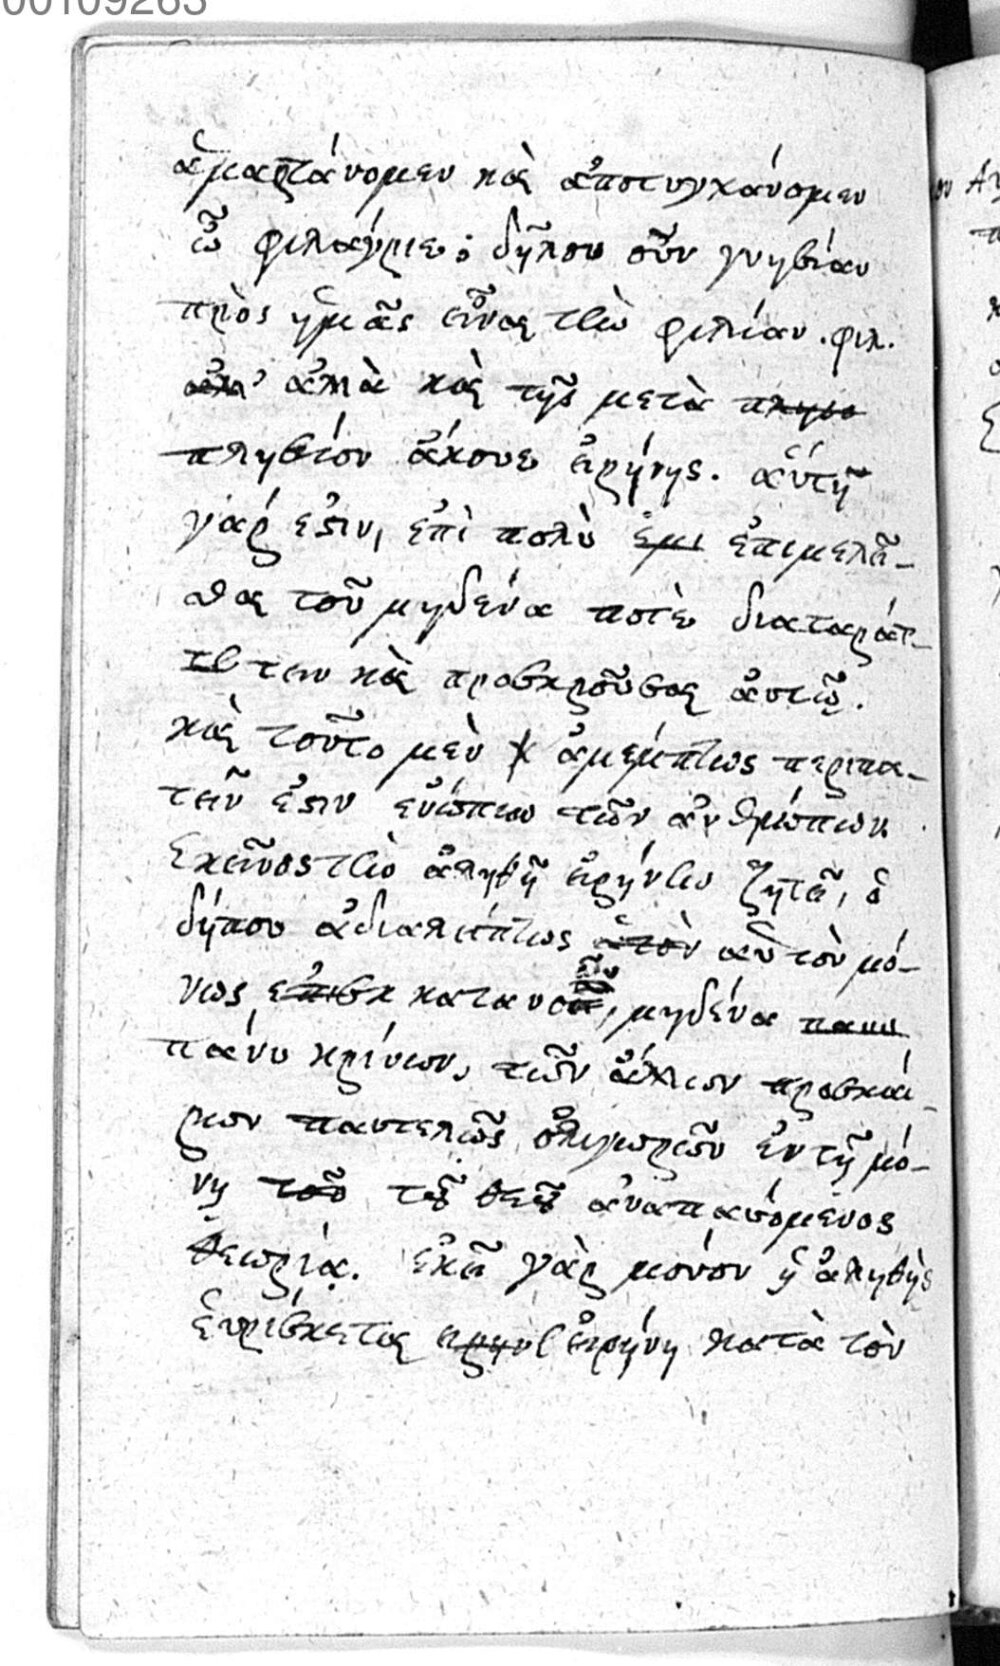 00109263
ἁμαρτάνομεν καὶ ἀποτυγχάνομεν
ὦ φιλάγριε; δῆλον οὖν γνησίαν
πρὸς ἡμᾶς εἶναι τὴν φιλίαν. φιλ.
ἀλλ' ἀλλὰ καὶ τῆς μετὰ πλησο
πλησίον ἄκουε εἰρήνης. αὕτη
γάρ ἐστιν, ἐπὶ πολὺ ἐμι ἐπιμελεῖ-
σθαι τοῦ μηδένα ποτὲ διαταράτ-
τσ τειν καὶ προσκροῦσαι αὐτῷ.
καὶ τοῦτο μὲν ἀμέμπτως περιπα-
τεῖν ἐστιν ἐνώπιον τῶν ἀνθρώπων
Ἐκεῖνος τὴν ἀληθῆ εἰρήνην ζητεῖ, ὁ
δήπου ἀδιαλείπτως αὐτὸν αὑτὸν μό-
νως ἐπισκ κατανοῶν, μηδένα πανυ
πάνυ κρίνων, τῶν ἄλλων προσκαί-
ρων παντελῶς ὀλιγωρῶν ἐν τῇ μό-
νῃ τοῦ τοῦ θεοῦ ἀναπαυόμενος
θεωρίᾳ. ἐκεῖ γὰρ μόνον ἡ ἀληθὴς
εὑρίσκεται ειρην εἰρήνη κατὰ τὸν